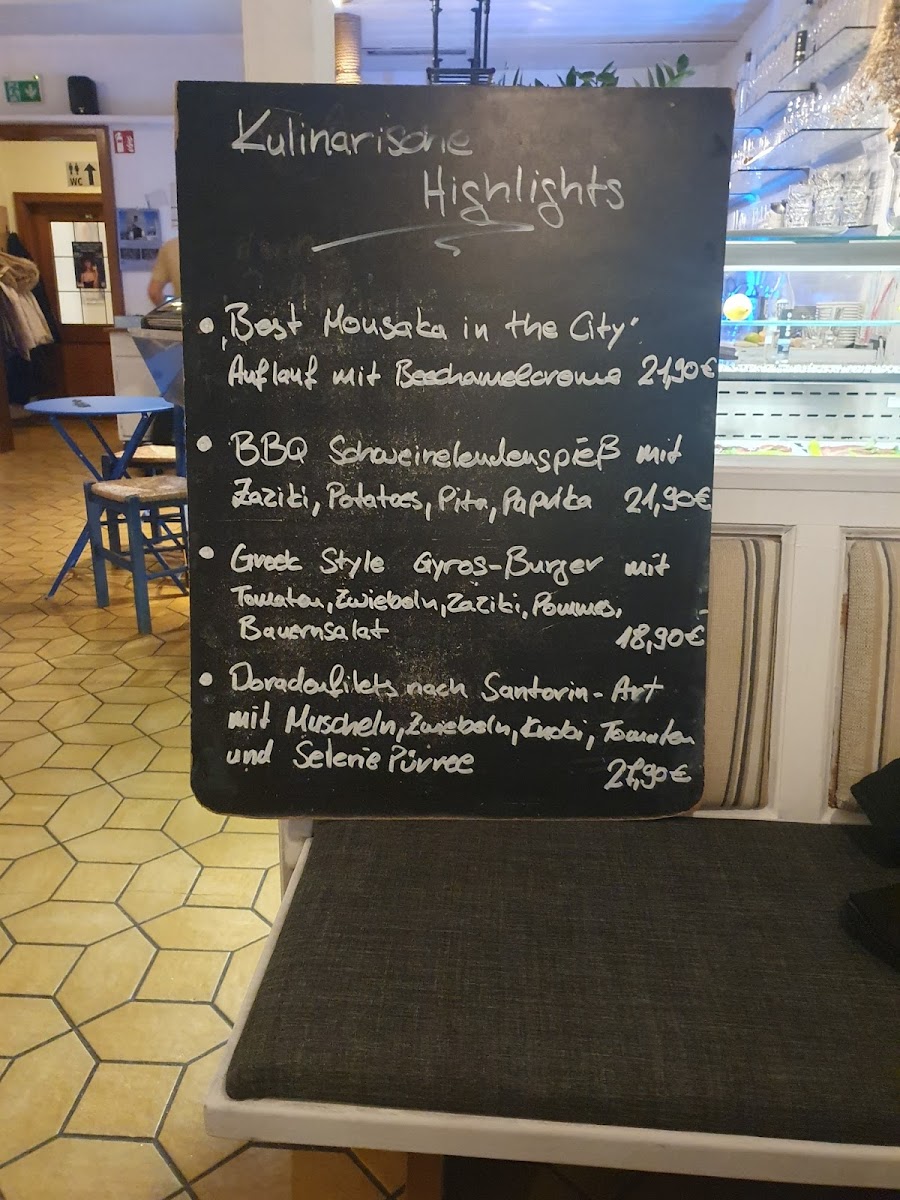 Kulinarische
Highlights
WC
• „Best Mousaka in the City“
Auflauf mit Beechamelcreme 21,90€
• BBQ Schweinelendenspieß mit
Zaziki, Potatoes, Pita, Paprika 21,90€
• Greek Style Gyros-Burger mit
Tomaten, Zwiebeln, Zaziki, Pommes,
Bauernsalat 18,90€
• Doradenfilets nach Santorin-Art
mit Muscheln, Zwiebeln, Knobi, Tomaten
und Selerie Pürree 21,90€